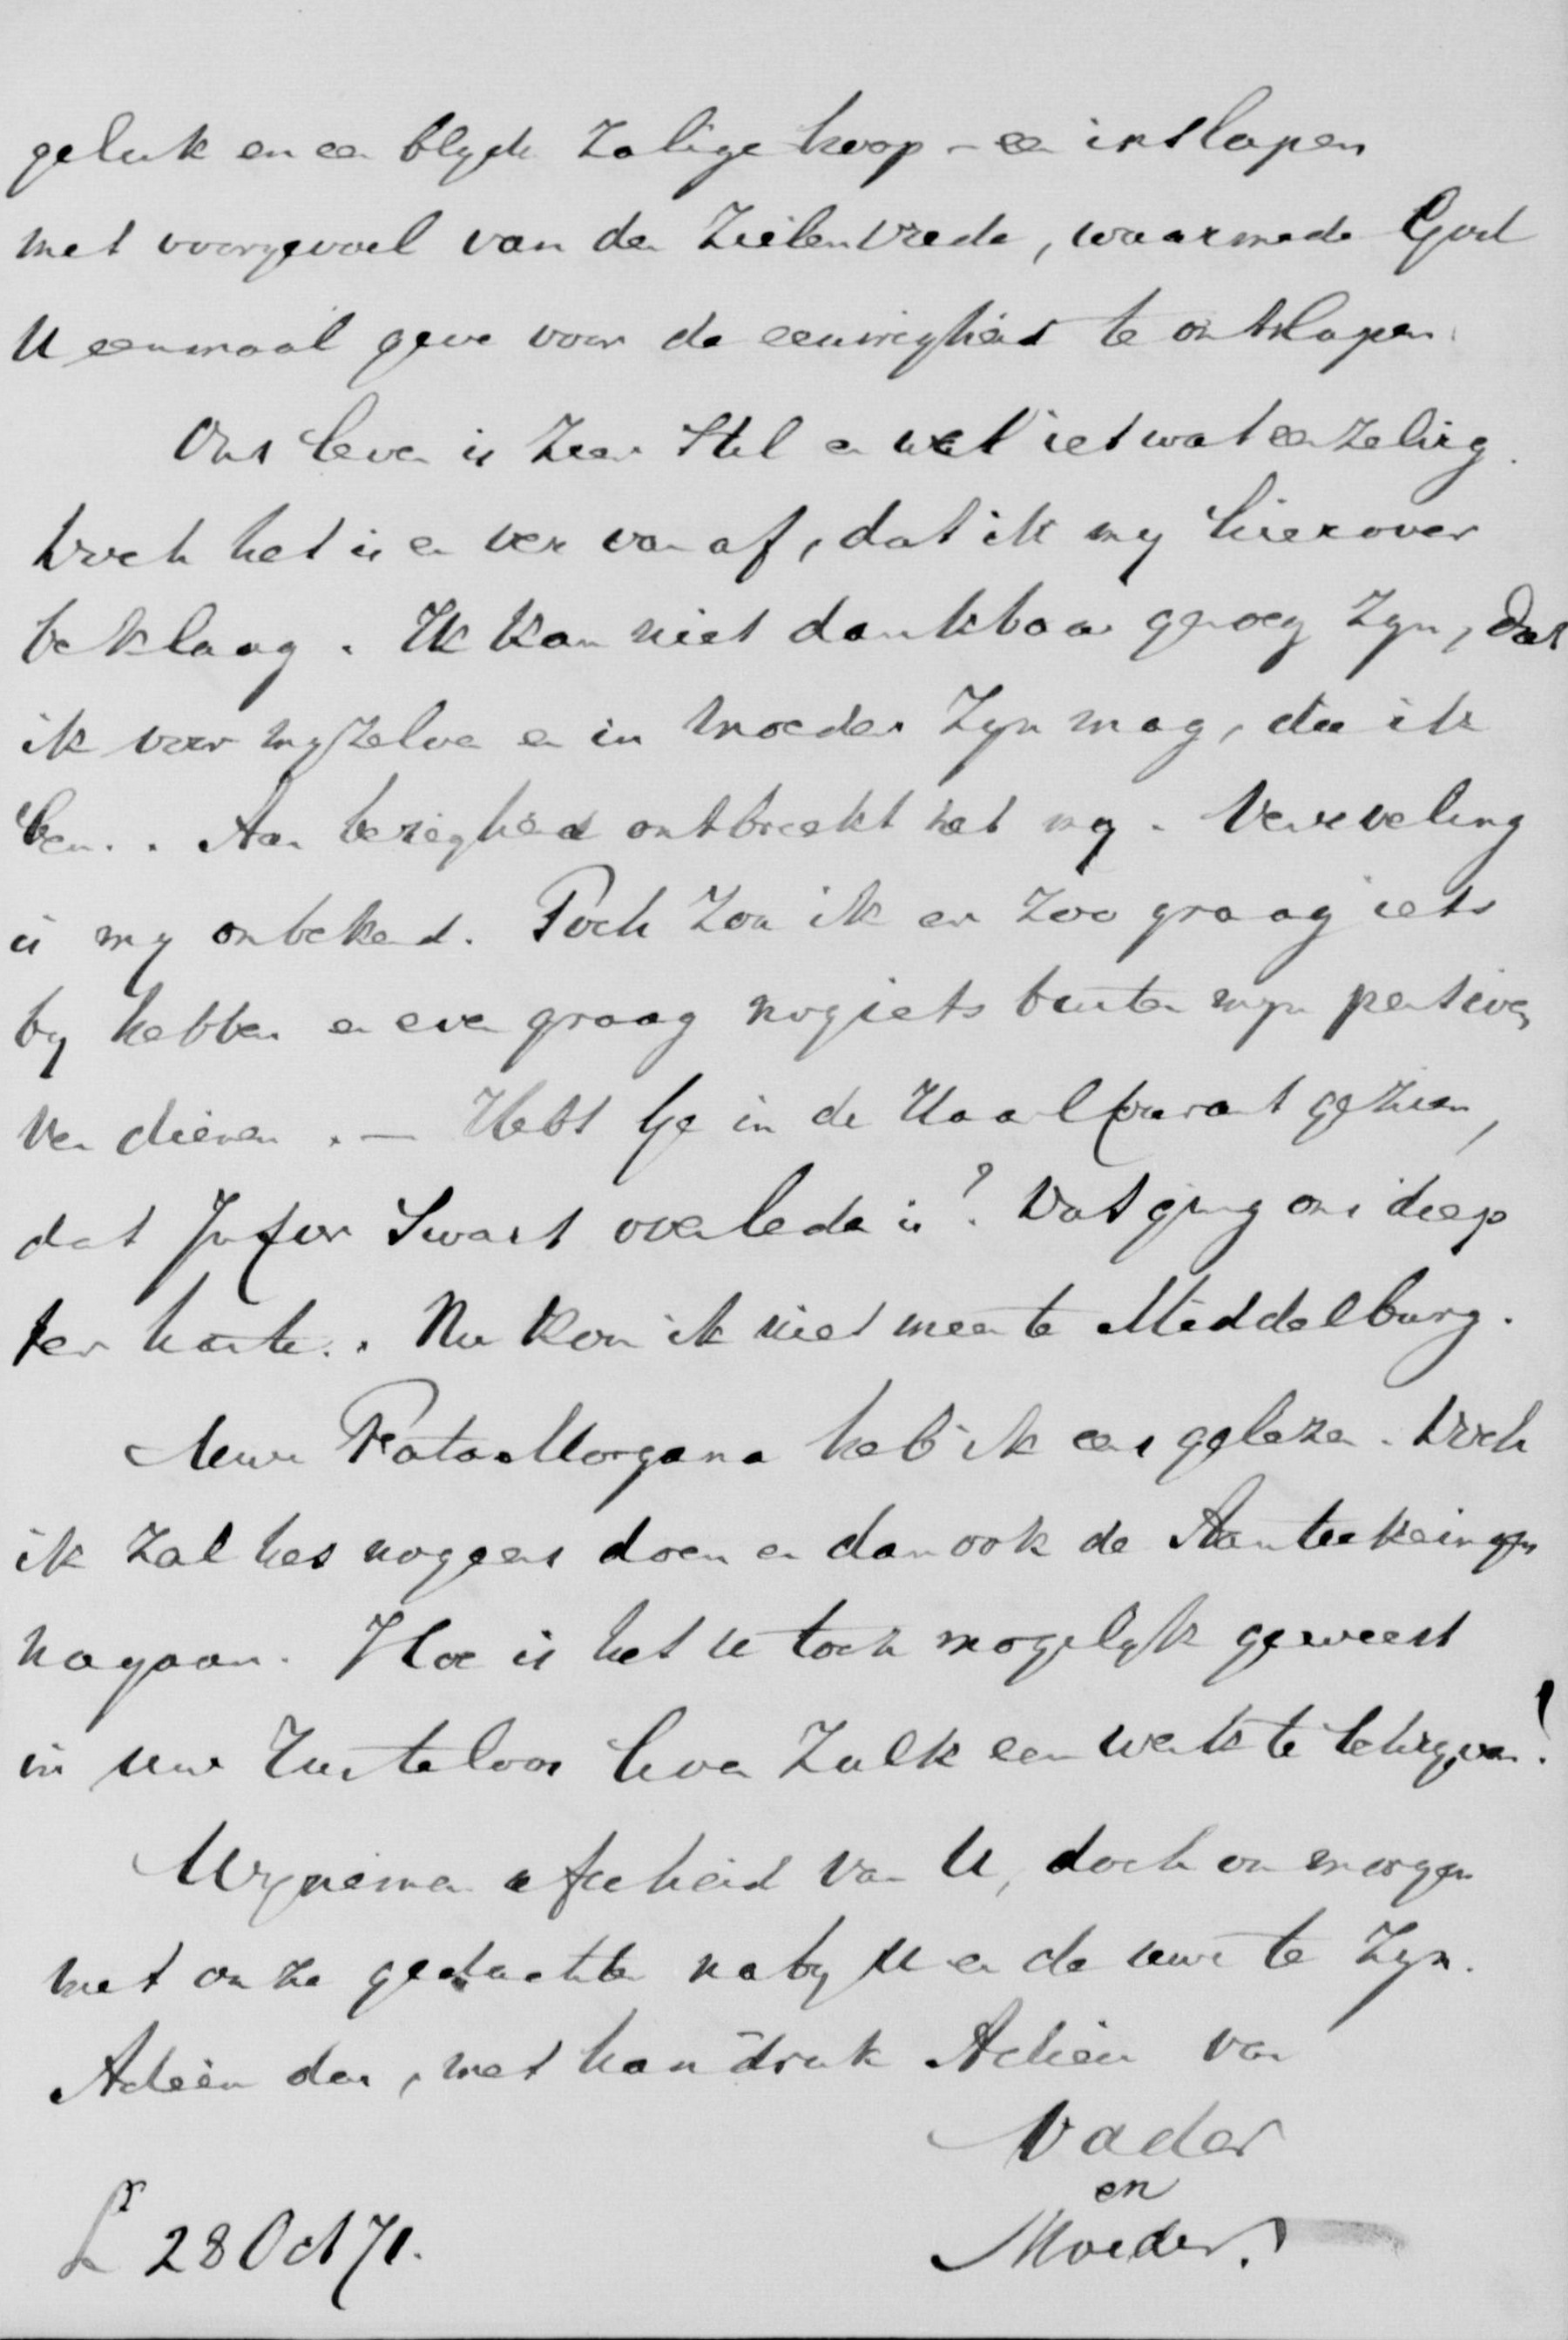 geluk en een blyde zalige hoop – een inslapen
met voorgevoel van den Zielenvrede, waarmede God
U eenmaal geve voor de eeuwigheid te ontslapen.
Ons leven is zeer stil en wel ietwat eenzelvig.
Doch het is er ver van af, dat ik my hierover
beklaag. Ik kan niet dankbaar genoeg zyn, dat
ik voor myzelve en in Moeder zyn mag, die ik
ben. Aan bezigheid ontbreekt het my. Verveeling
is my onbekend. Toch zou ik er zoo graag iets
by hebben en even graag nog iets buiten myn pensioen
verdienen. — Hebt Ge in de Haarl Courant gezien,
dat Jufvr Swart overleden is? Dat ging ons diep
ter harte. Nu kon ik niet meer te Middelburg.
Uwe Fata Morgana heb ik eens gelezen. Doch
ik zal het nog eens doen en dan ook de Aanteekeningen
nagaan. Hoe is het U toch mogelyk geweest
in uw rusteloos leven zulk een werk te schryven!
Wy nemen afscheid van U, doch om morgen
met onze gedachten naby U en de uwen te zyn.
Adieu dan, met handdruk Adieu van
Vader
en
Moeder.
L 28 Oct 71.